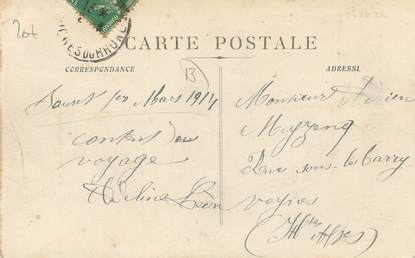 20t
HES DU RHONE
CARTE POSTALE
CORRESPONDANCE
13
ADRESSE
1er Mars 1914
content du
voyage
Adeline Léon
Monsieur
Rue sous-le-Barry
Veynes
(Htes Alpes)